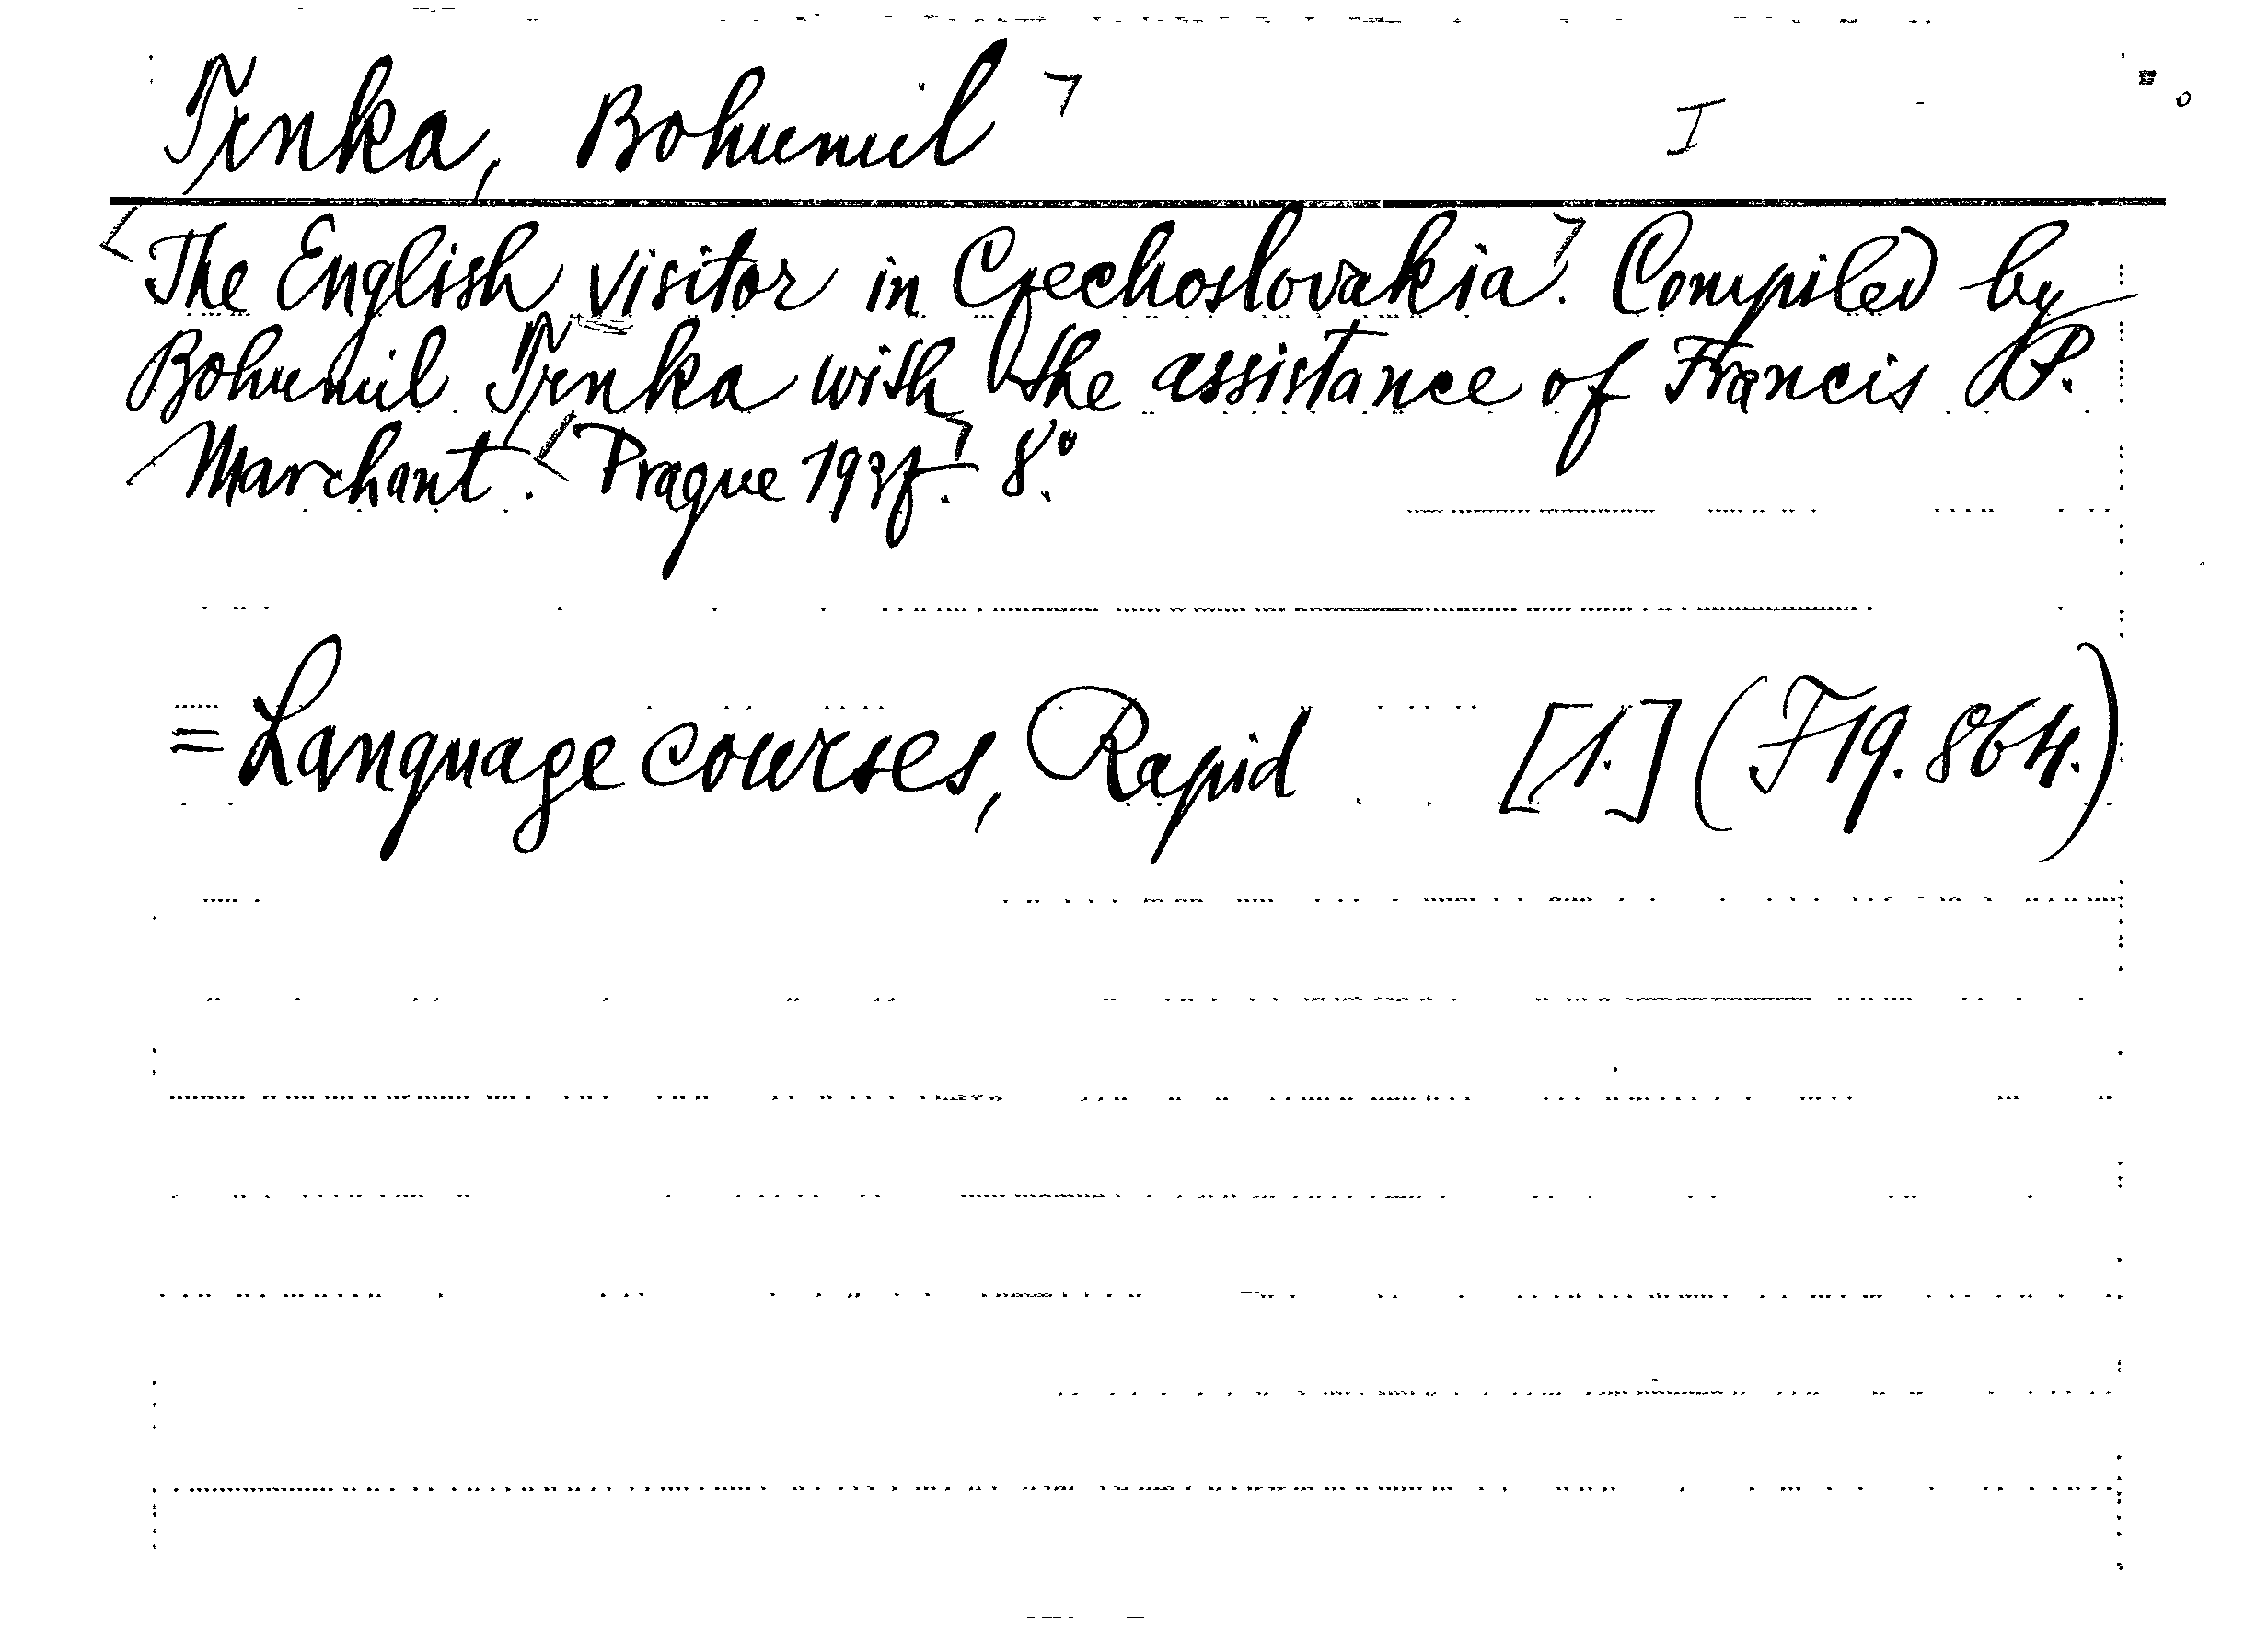 Trnka, Bohumil I
The English visitor in Czechoslovakia. Compiled by
Bohumil Trnka with the assistance of Francis P.
Marchant. Prague 1937. 8°.
= Language courses, Rapid [1.] (F19.864.)